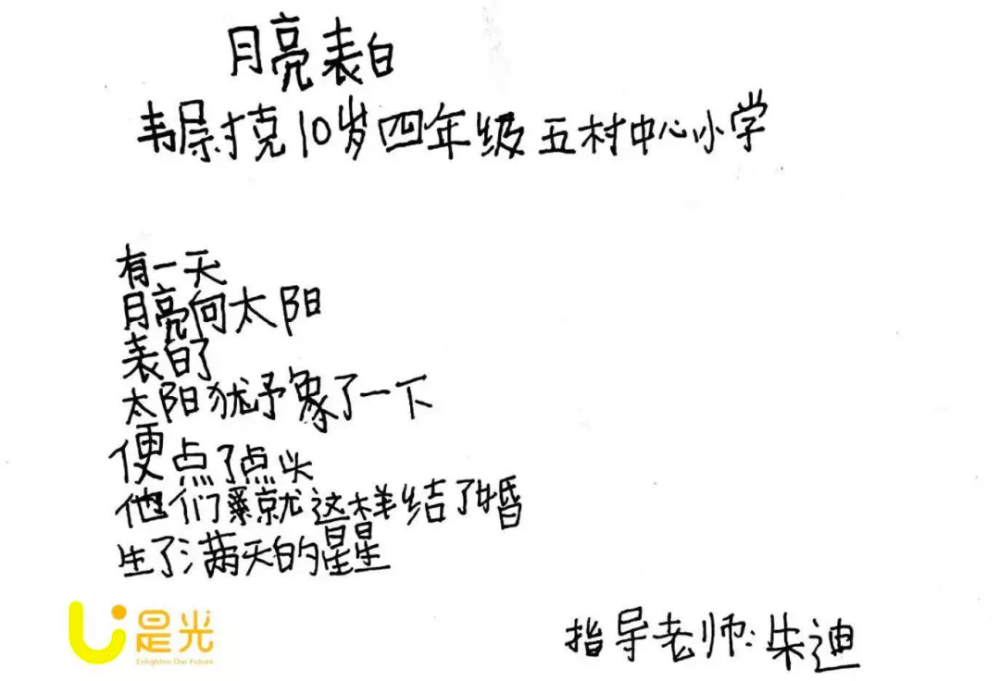 月亮表白
韦尉克10岁四年级 五村中心小学
有一天
月亮向太阳
表白了
太阳犹予象了一下
便点了点头
他们就这样结了婚
生了满天的星星
是光
Enlighten Our Future
指导老师:朱迪